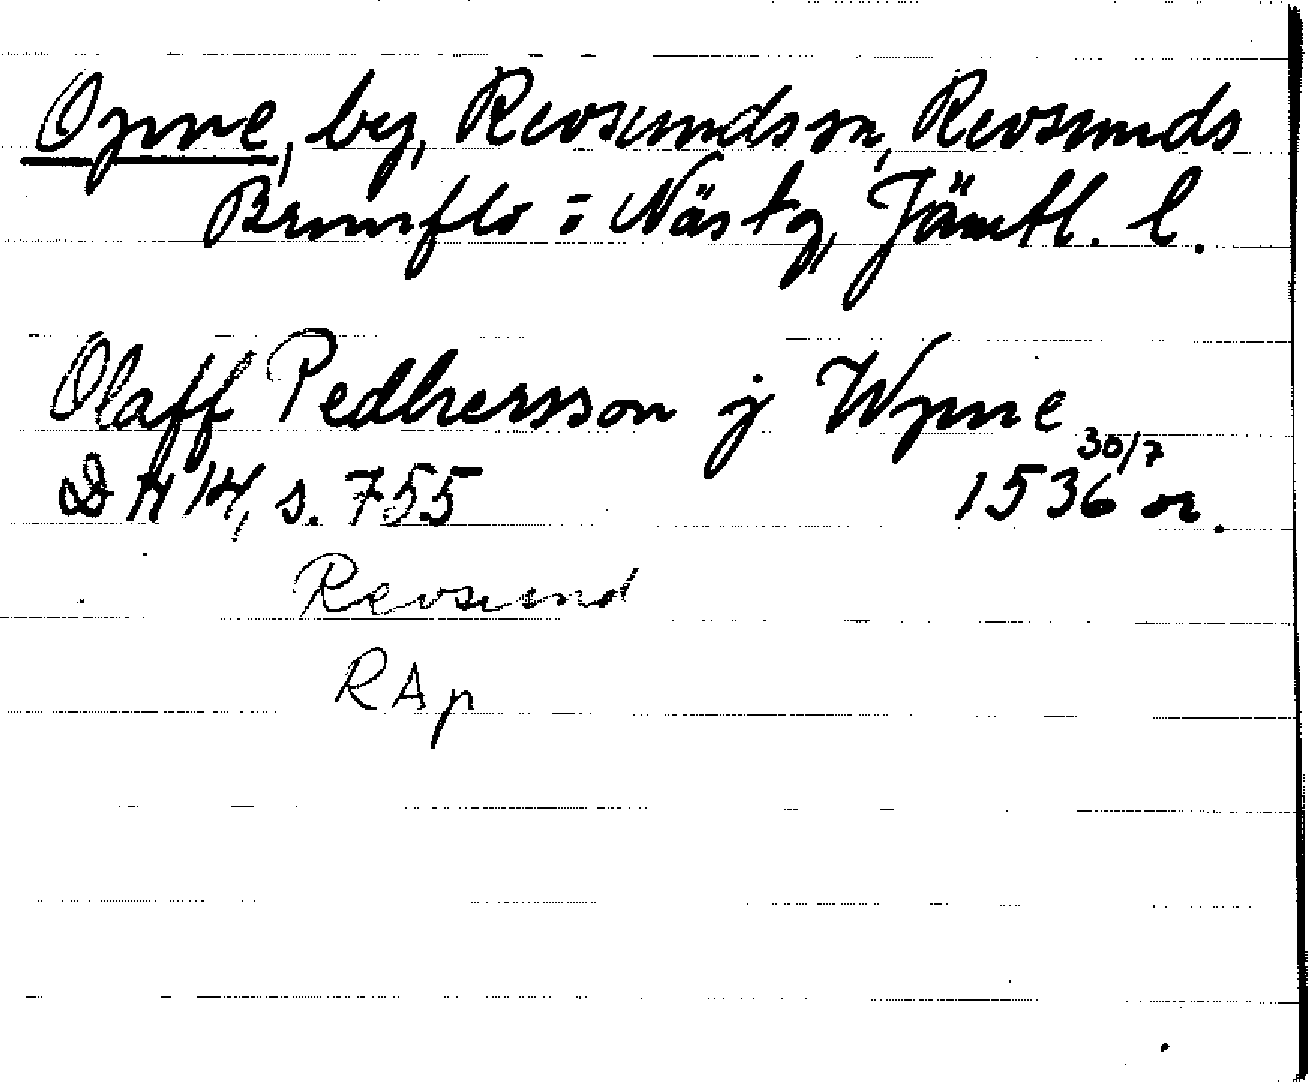 Opne, by, Revsunds sn, Revsunds
Brunflo o Näs tg, Jämtl. l.
Olaff Pedhersson j Wpne
30/7
DN 14, s. 755 1536 or.
Revsund
RAp